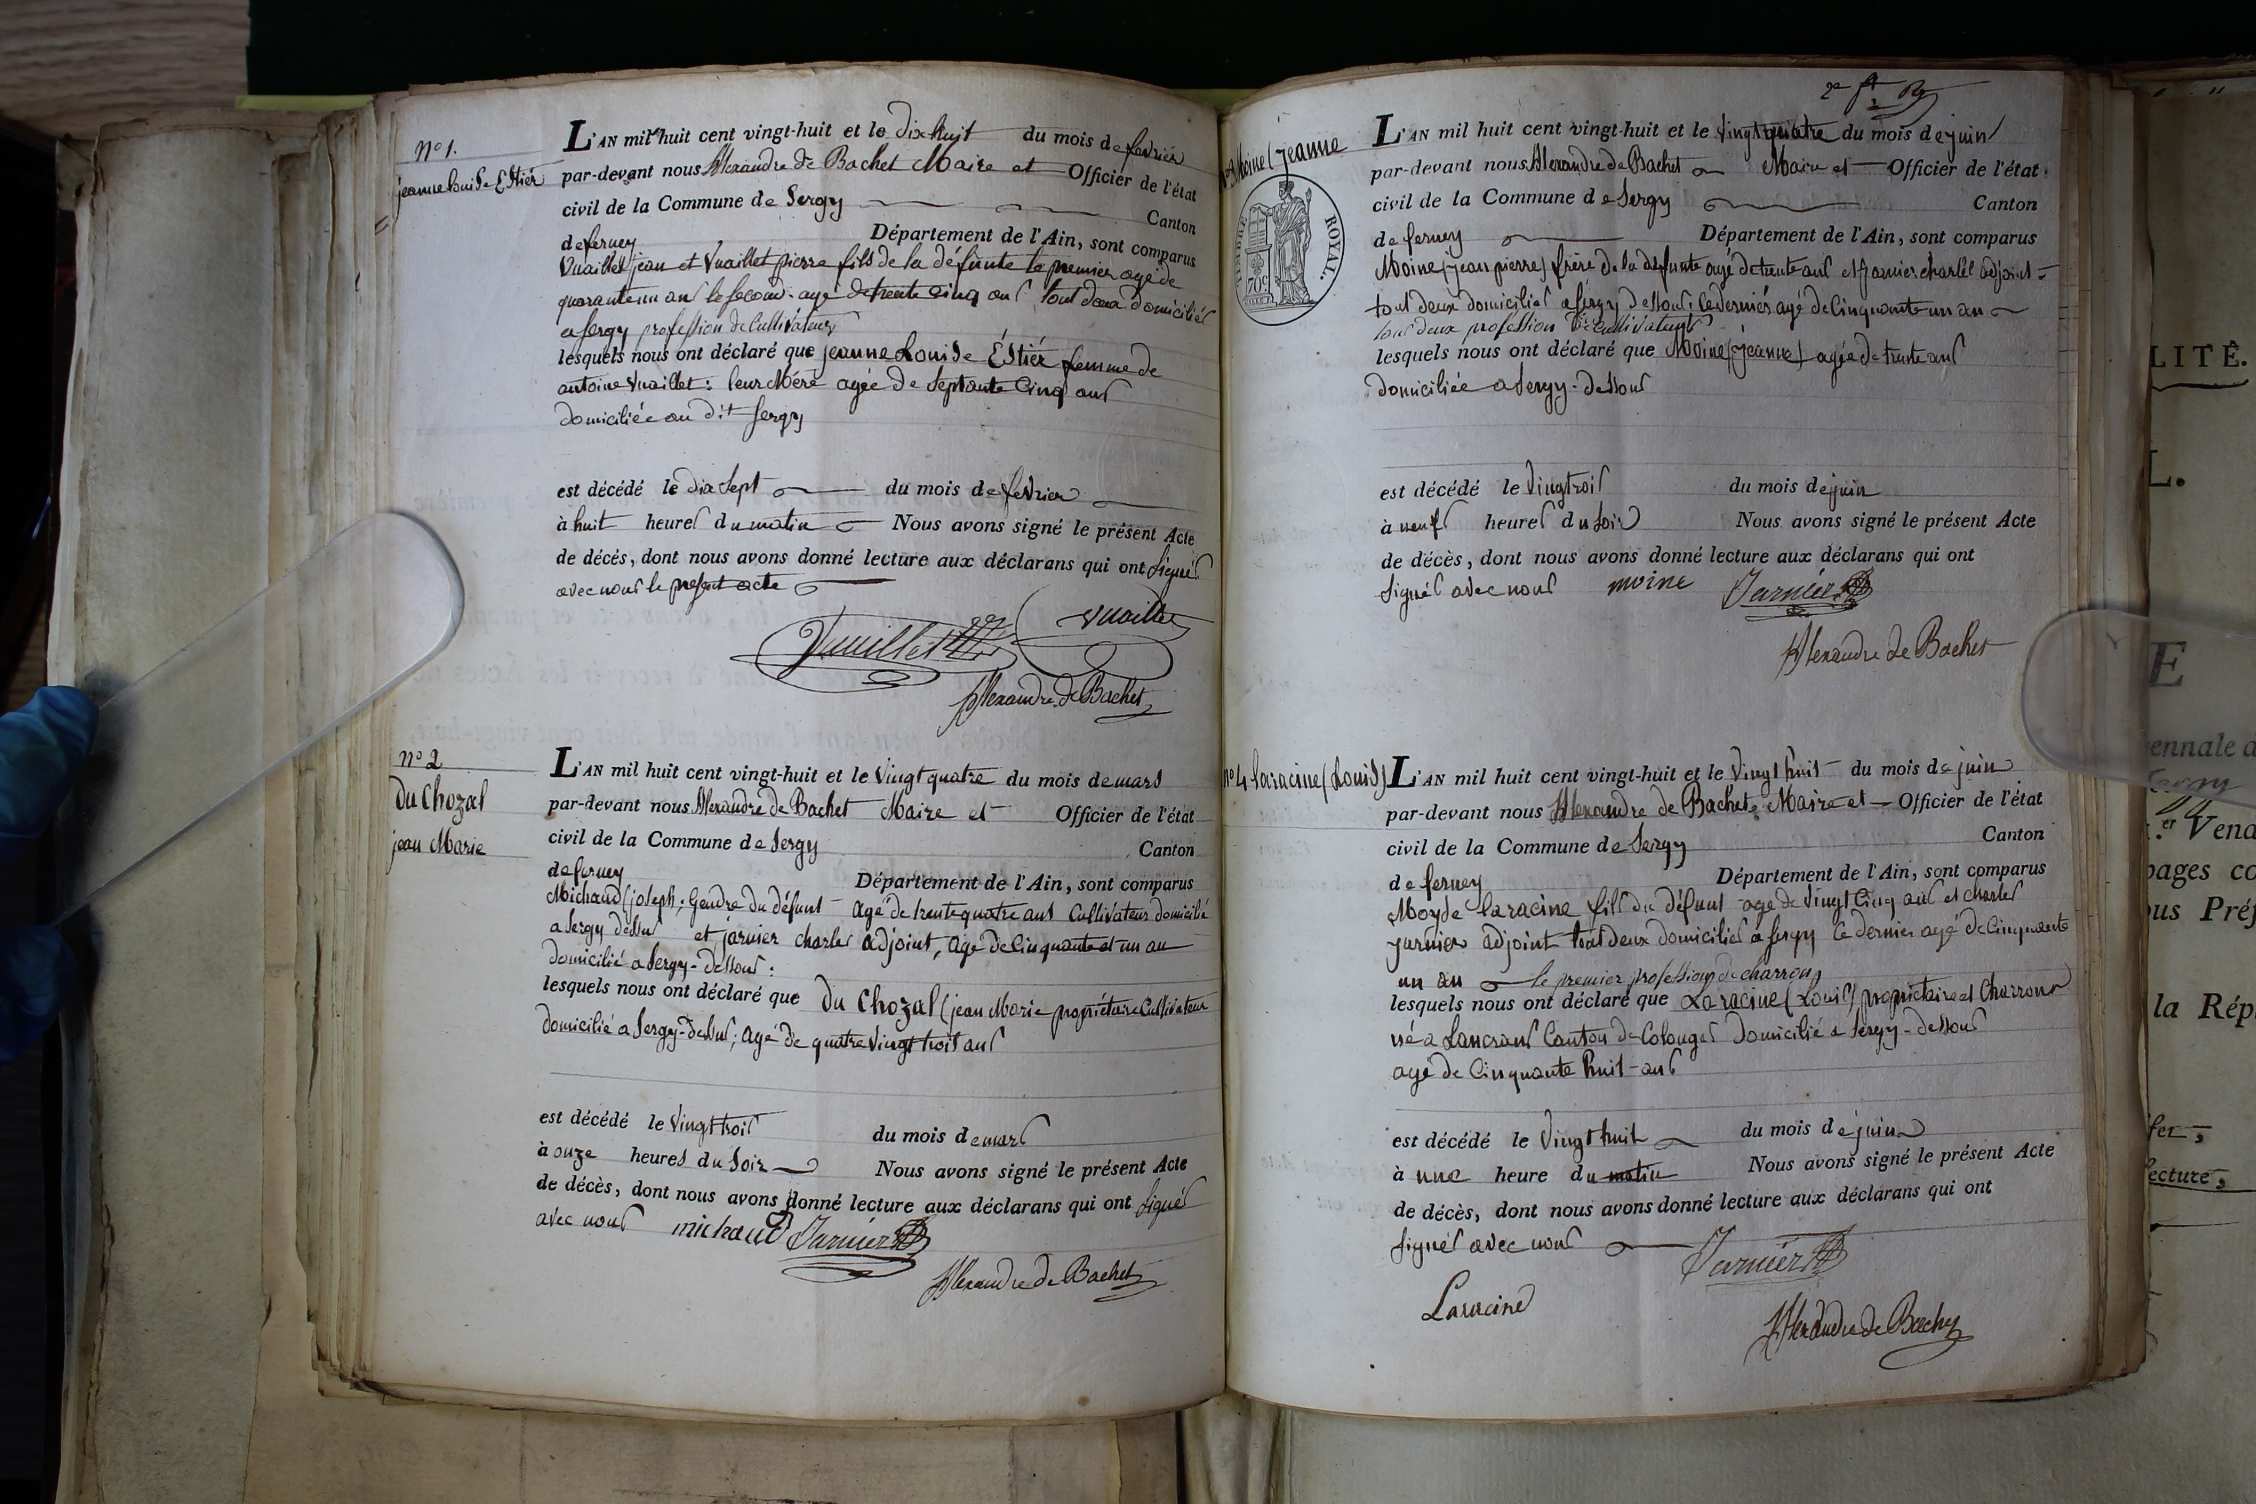 N° 1.
jeanne Louise Estiér
L'AN mil huit cent vingt-huit et le dix huit du mois de fevrier
par-devant nous Alexandre de Bachet Maire et Officier de l'état
civil de la Commune de Sergy Canton
de ferney Département de l'Ain, sont comparus
Vuaillet jean et Vuaillet pierre fils de la défunte le premier agé de
quarante un ans le second agé de trente cinq ans tout deux domiciliés
a Sergy profession de Cultivateurs
lesquels nous ont déclaré que jeanne Louise Estiér femme de
antoine Vuaillet : leur Mere agée de Septante Cinq ans
domiciliée au dit Sergy
est décédé le dix Sept du mois de fevrier
à huit heures du matin Nous avons signé le présent Acte
de décès, dont nous avons donné lecture aux déclarans qui ont Signés
avec nous le present acte
Vuaillet
Vuaillet
Alexandre de Bachet
N° 2
Du Chozal
jean Marie
L'AN mil huit cent vingt-huit et le Vingt quatre du mois de mars
par-devant nous Alexandre de Bachet Maire et Officier de l'état
civil de la Commune de Sergy Canton
de ferney Département de l'Ain, sont comparus
Michaud (joseph ; Gendre du défunt agé de trente quatre ans Cultivateur domicilié
a Sergy dessus et jarnier charles adjoint, agé de Cinquante et un an
domicilié a Sergy-dessous :
lesquels nous ont déclaré que Du Chozal (jean Marie propriétaire Cultivateur
domicilié a Sergy-dessus ; agé de quatre Vingt trois ans
est décédé le Vingt trois du mois de mars
à onze heures du Soir Nous avons signé le présent Acte
de décès, dont nous avons donné lecture aux déclarans qui ont Signés
avec nous michaud Jarnier
Alexandre de Bachet
Moine (jeanne
TIMBRE ROYAL.
70c.
L'AN mil huit cent vingt-huit et le Vingt quatre du mois de juin
par-devant nous Alexandre de Bachet Maire et Officier de l'état
civil de la Commune de Sergy Canton
de ferney Département de l'Ain, sont comparus
Moine (jean pierre) frère de la défunte agé de trente ans et jarnier charles adjoint
tout deux domiciliés a Sergy dessous ; le derniér agé de Cinquante un an
tous deux profession de Cultivateurs
lesquels nous ont déclaré que Moine (jeanne) agée de trente ans
domiciliée a Sergy-dessous
est décédé le Vingt trois du mois de juin
à neuf heures du Soir Nous avons signé le présent Acte
de décès, dont nous avons donné lecture aux déclarans qui ont
Signés avec nous moine Jarniér
Alexandre de Bachet
N° 4 Laracine (Louis)
L'AN mil huit cent vingt-huit et le Vingt huit du mois de juin
par-devant nous Alexandre de Bachet Maire et Officier de l'état
civil de la Commune de Sergy Canton
de ferney Département de l'Ain, sont comparus
Moyse Laracine fils du défunt agé de Vingt Cinq ans et charles
jarniér adjoint tout deux domiciliés a Sergy le dernier agé de Cinquante
un an le premier profession de charron
lesquels nous ont déclaré que Laracine (Louis) propriétaire et Charron
né a Lancrans Canton de Colonges Domicilié a Sergy-dessous
agé de Cinquante huit ans
est décédé le Vingt huit du mois de juin
à une heure du matin Nous avons signé le présent Acte
de décès, dont nous avons donné lecture aux déclarans qui ont
Signés avec nous Jarniér
Laracine
Alexandre de Bachet
LITÉ.
L.
E
ennale
Sergy
Vend
pages co
ous Préf
la Rép
ecture,